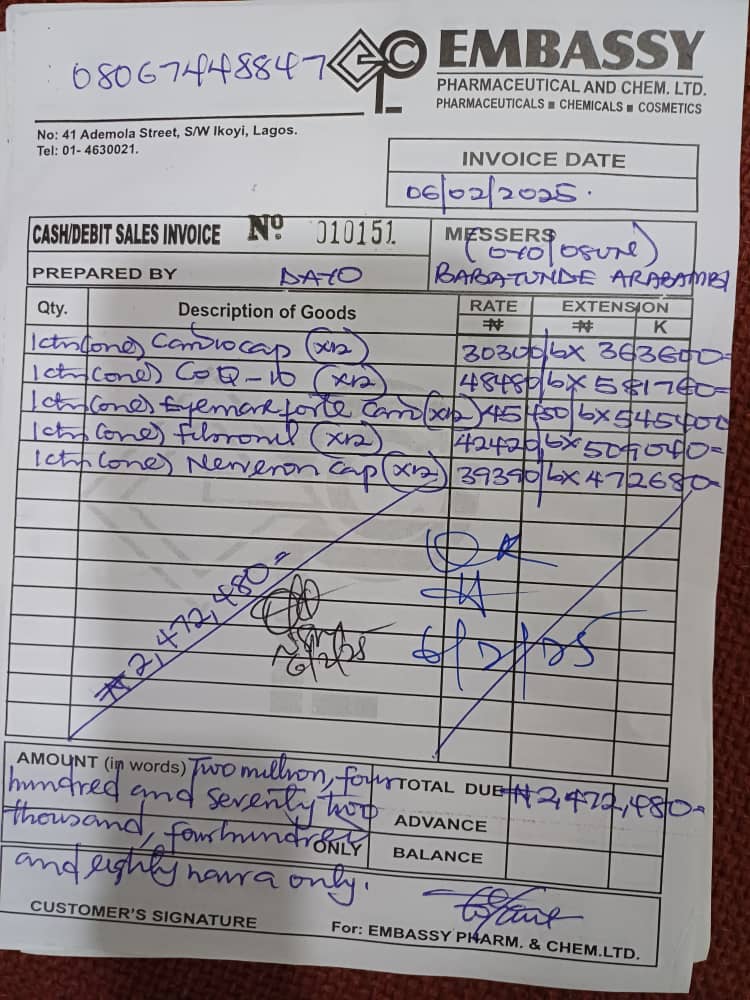 08067448847
EMBASSY
PHARMACEUTICAL AND CHEM. LTD.
PHARMACEUTICALS ■ CHEMICALS ■ COSMETICS
No: 41 Ademola Street, S/W Ikoyi, Lagos.
Tel: 01- 4630021.
INVOICE DATE
06/02/2025.
CASH/DEBIT SALES INVOICE Nº 010151
MESSERS (OYO/OSUN)
PREPARED BY DAYO
BABATUNDE ARABAMBI
Qty. Description of Goods RATE ₦ EXTENSION ₦ K
1ctn(one) Cardiocap (x12) 30300/bx 363600=
1ctn(one) CoQ-10 (x12) 48480/bx 581760=
1ctn(one) Eyemark forte Card (x12) 45450/bx 545400
1ctn(one) Filoronil (x12) 42420/bx 509040=
1ctn(one) Nerveron cap (x12) 39390/bx 472680=
₦2,472,480=
OK
6/2/25
6/2/25
AMOUNT (in words) Two million, four
hundred and seventy two
thousand, four hundred
and eighty naira only.
ONLY
TOTAL DUE ₦2,472,480=
ADVANCE
BALANCE
CUSTOMER'S SIGNATURE
For: EMBASSY PHARM. & CHEM.LTD.